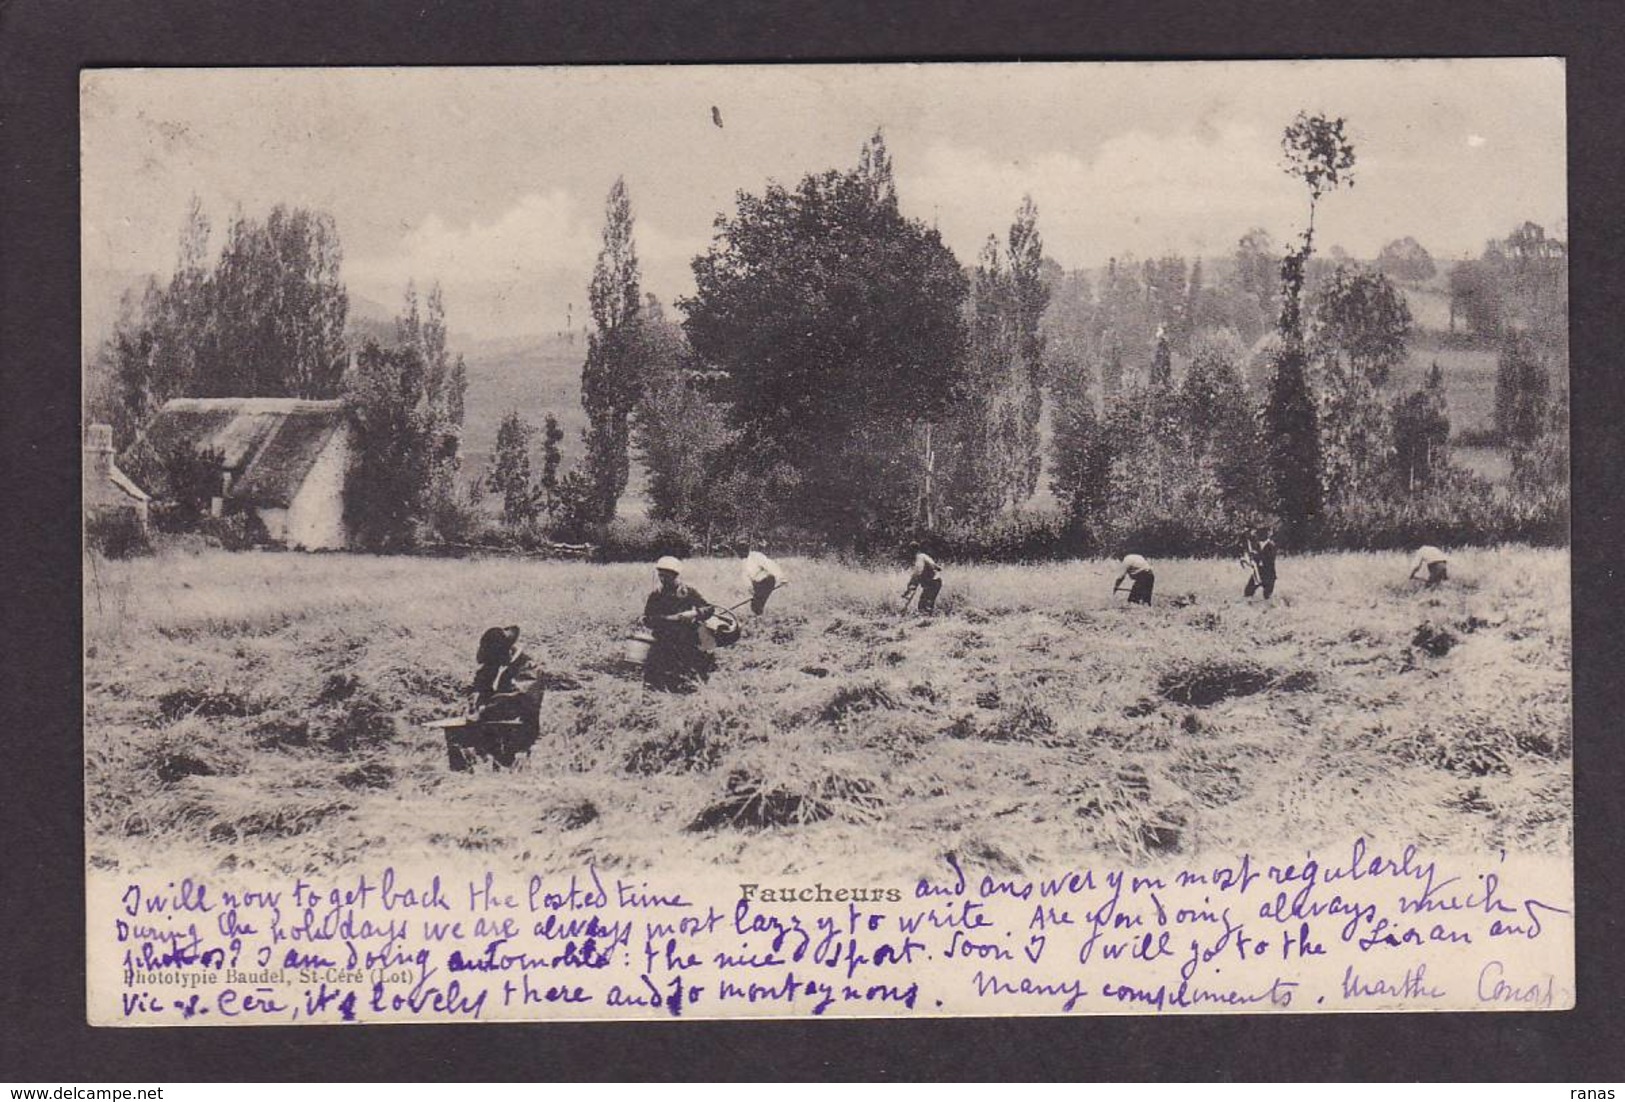 Faucheurs
I will now to get back the losted time and answer you most régularly.
During the holidays we are always most lazzy to write. Are you doing always much
photos? I am doing automobile: the nice sport. Soon I will go to the Lioran and
Phototypie Baudel, St-Céré (Lot)
Vic-s. Cère, it's lovely there and so montaynous. Many compliments. Marthe
delcampe.net
ranas